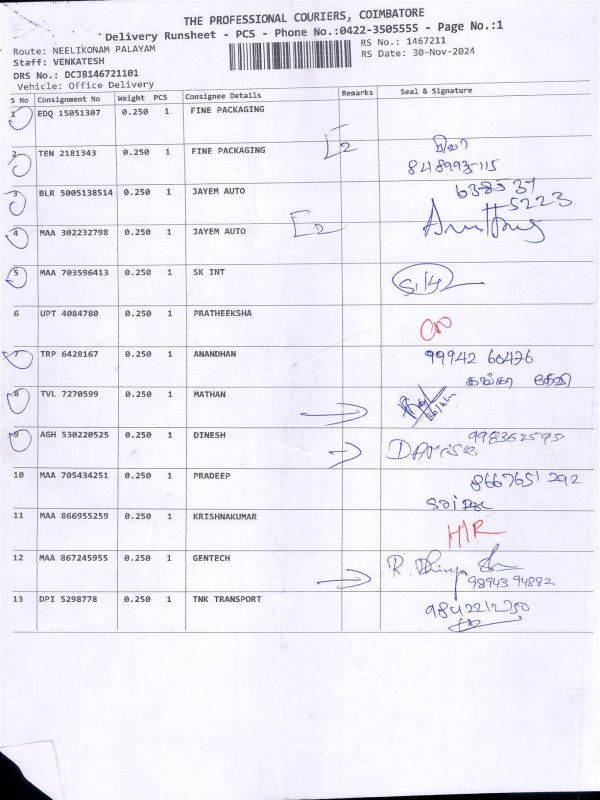 THE PROFESSIONAL COURIERS, COIMBATORE
Delivery Runsheet - PCS - Phone No.:0422-3505555 - Page No.:1
Route: NEELIKONAM PALAYAM
RS No.: 1467211
Staff: VENKATESH
RS Date: 30-Nov-2024
DRS No.: DCJB146721101
Vehicle: Office Delivery
S No Consignment No Weight PCS Consignee Details Remarks Seal & Signature
1 EDQ 15051307 0.250 1 FINE PACKAGING
2 TEN 2181343 0.250 1 FINE PACKAGING
848993-115
3 BLR 5005138514 0.250 1 JAYEM AUTO
638537
5223
4 MAA 302232798 0.250 1 JAYEM AUTO
5 MAA 703596413 0.250 1 SK INT
6 UPT 4084780 0.250 1 PRATHEEKSHA
7 TRP 6428167 0.250 1 ANANDHAN 99942 60476
8 TVL 7270599 0.250 1 MATHAN
9 AGH 530220525 0.250 1 DINESH 998362595
10 MAA 705434251 0.250 1 PRADEEP 8667651 292
11 MAA 866955259 0.250 1 KRISHNAKUMAR
H/R
12 MAA 867245955 0.250 1 GENTECH
98943 94882
13 DPI 5298778 0.250 1 TNK TRANSPORT